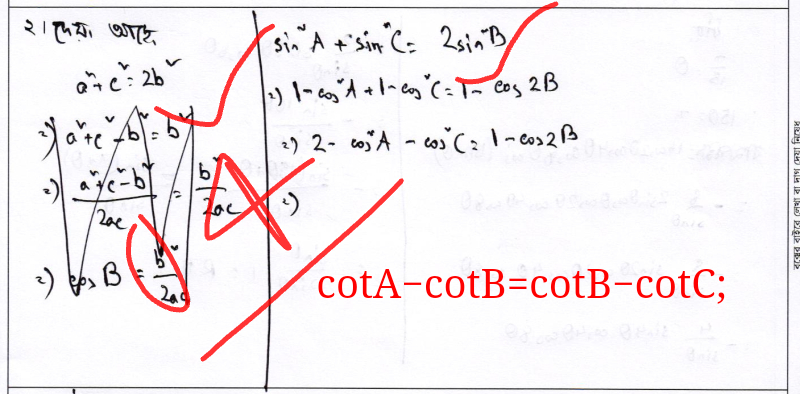 ২। দেয়া আছে
a² + c² = 2b²
⇒) a² + c² - b² = b²
⇒) (a² + c² - b²)/2ac = b²/2ac
⇒) cos B = b²/2ac
sin²A + sin²C = 2sin²B
⇒) 1 - cos²A + 1 - cos²C = 1 - cos 2B
⇒) 2 - cos²A - cos²C = 1 - cos2B
⇒)
cotA−cotB=cotB−cotC;